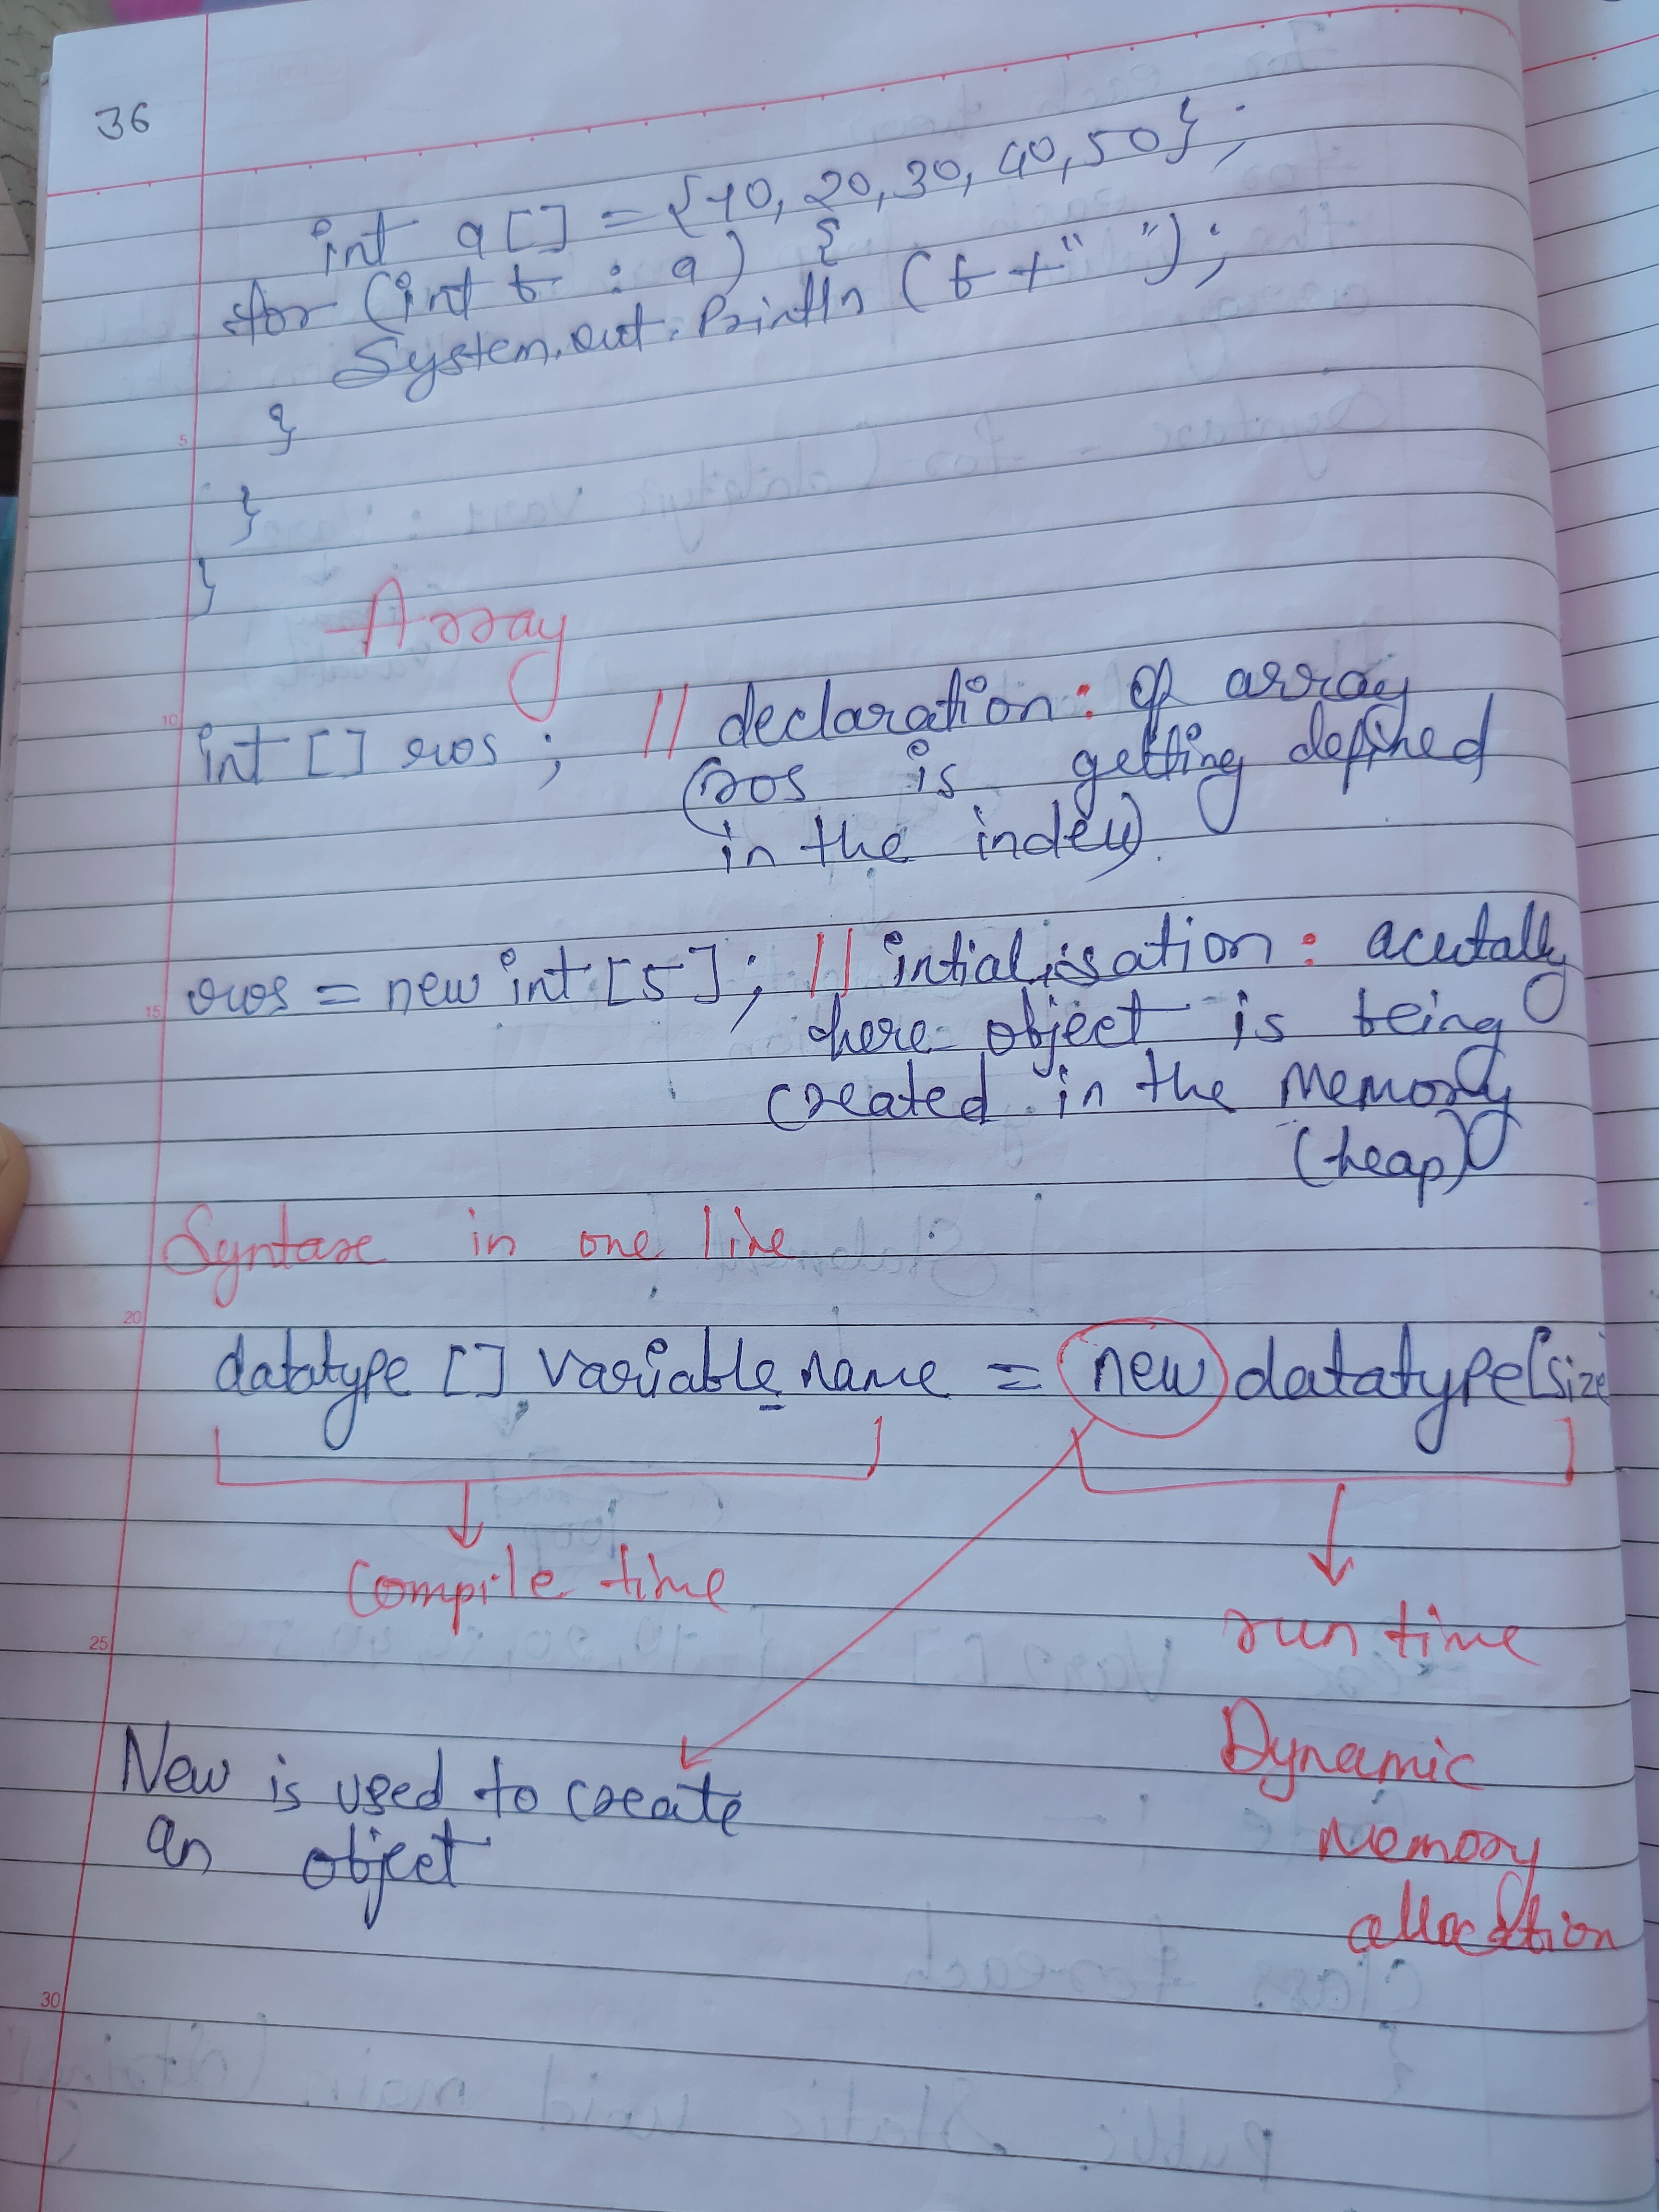 36
int a[] = {10, 20, 30, 40, 50};
for (int b : a) {
System.out.Println (b + " ");
}
}
}
Array
int [] ros ; // declaration: of array
(ros is getting defined
in the index)
ros = new int [5]; // intialisation: acutally
here object is being
created in the Memory
(heap)
Syntax in one line
datatype [] variable_name = new datatype[size
compile time
run time
Dynamic
Memory
allocation
New is used to create
an object
5
10
15
20
25
30